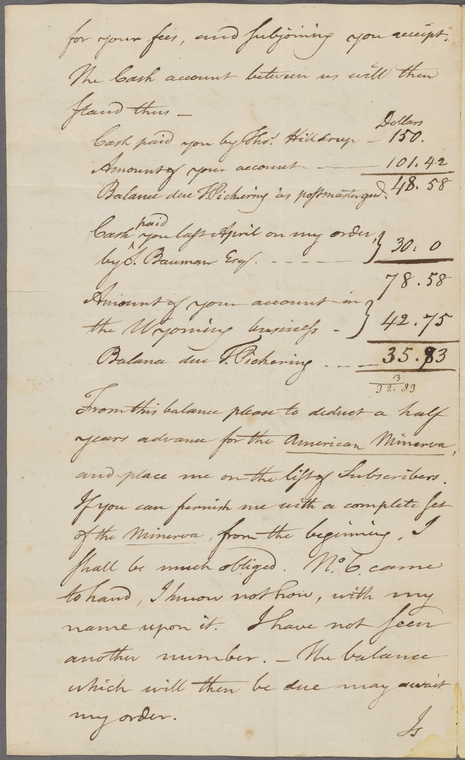 for your fees, and subjoining your receipt.
The Cash account between us will then
stand thus —
Dollars
Cash paid you by Thos. Hilldrup — 150.
Amount of your account — 101.42
Balance due T. Pickering as postmaster genl. 48.58
Cash paid you last April on my order,
by S. Bauman Esq. - - - - - } 30. 0
78.58
Amount of your account in
the Wyoming business - } 42.75
Balance due T. Pickering - - - - 35.83
3
32.83
From this balance please to deduct a half
years advance for the American Minerva,
and place me on the list of Subscribers.
If you can furnish me with a complete set
of the Minerva, from the beginning, I
shall be much obliged. No. 6 came
to hand, I know not how, with my
name upon it. I have not seen
another number. — The balance
which will then be due may await
my order.
Is